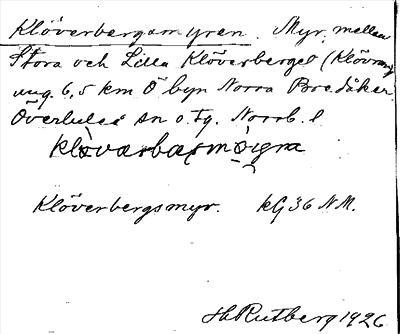 Klöverbergsmyren. Myr, mellan
Stora och Lilla Klöverberget (Klövran)
ung. 6,5 km Ö byn Norra Bredåker
Överluleå sn o. tg. Norrb. l
Klöverbergsmyr. kG36 NM.
H Rutberg 1926